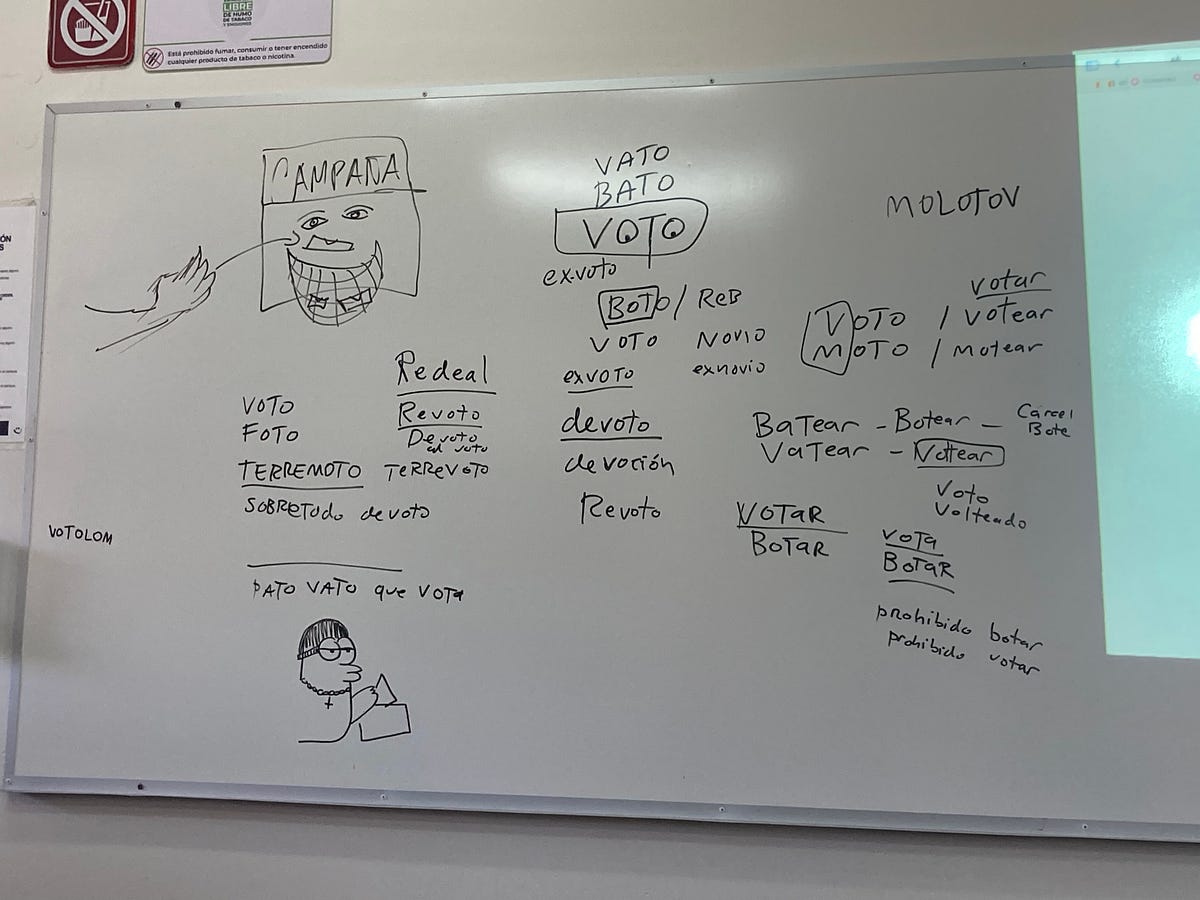 LIBRE
DE HUMO
DE TABACO
Y EMISIONES
Está prohibido fumar, consumir o tener encendido
cualquier producto de tabaco o nicotina.
ÓN
S
CAMPAÑA
VATO
BATO
VOTO
ex-voto
BOTO / ReB
VOTO NOVIO
exvoto exnovio
devoto
devoción
Revoto
MOLOTOV
votar
VOTO / Votear
MOTO / Motear
Batear - Botear - Cárcel
Bote
Vatear - Voltear
Voto
Volteado
VOTAR
BOTAR
VOTA
BOTAR
prohibido botar
prohibido votar
Redeal
VOTO Revoto
FOTO Devoto
el voto
TERREMOTO TERREVOTO
SOBRETODO devoto
VOTOLOM
PATO VATO que VOTA